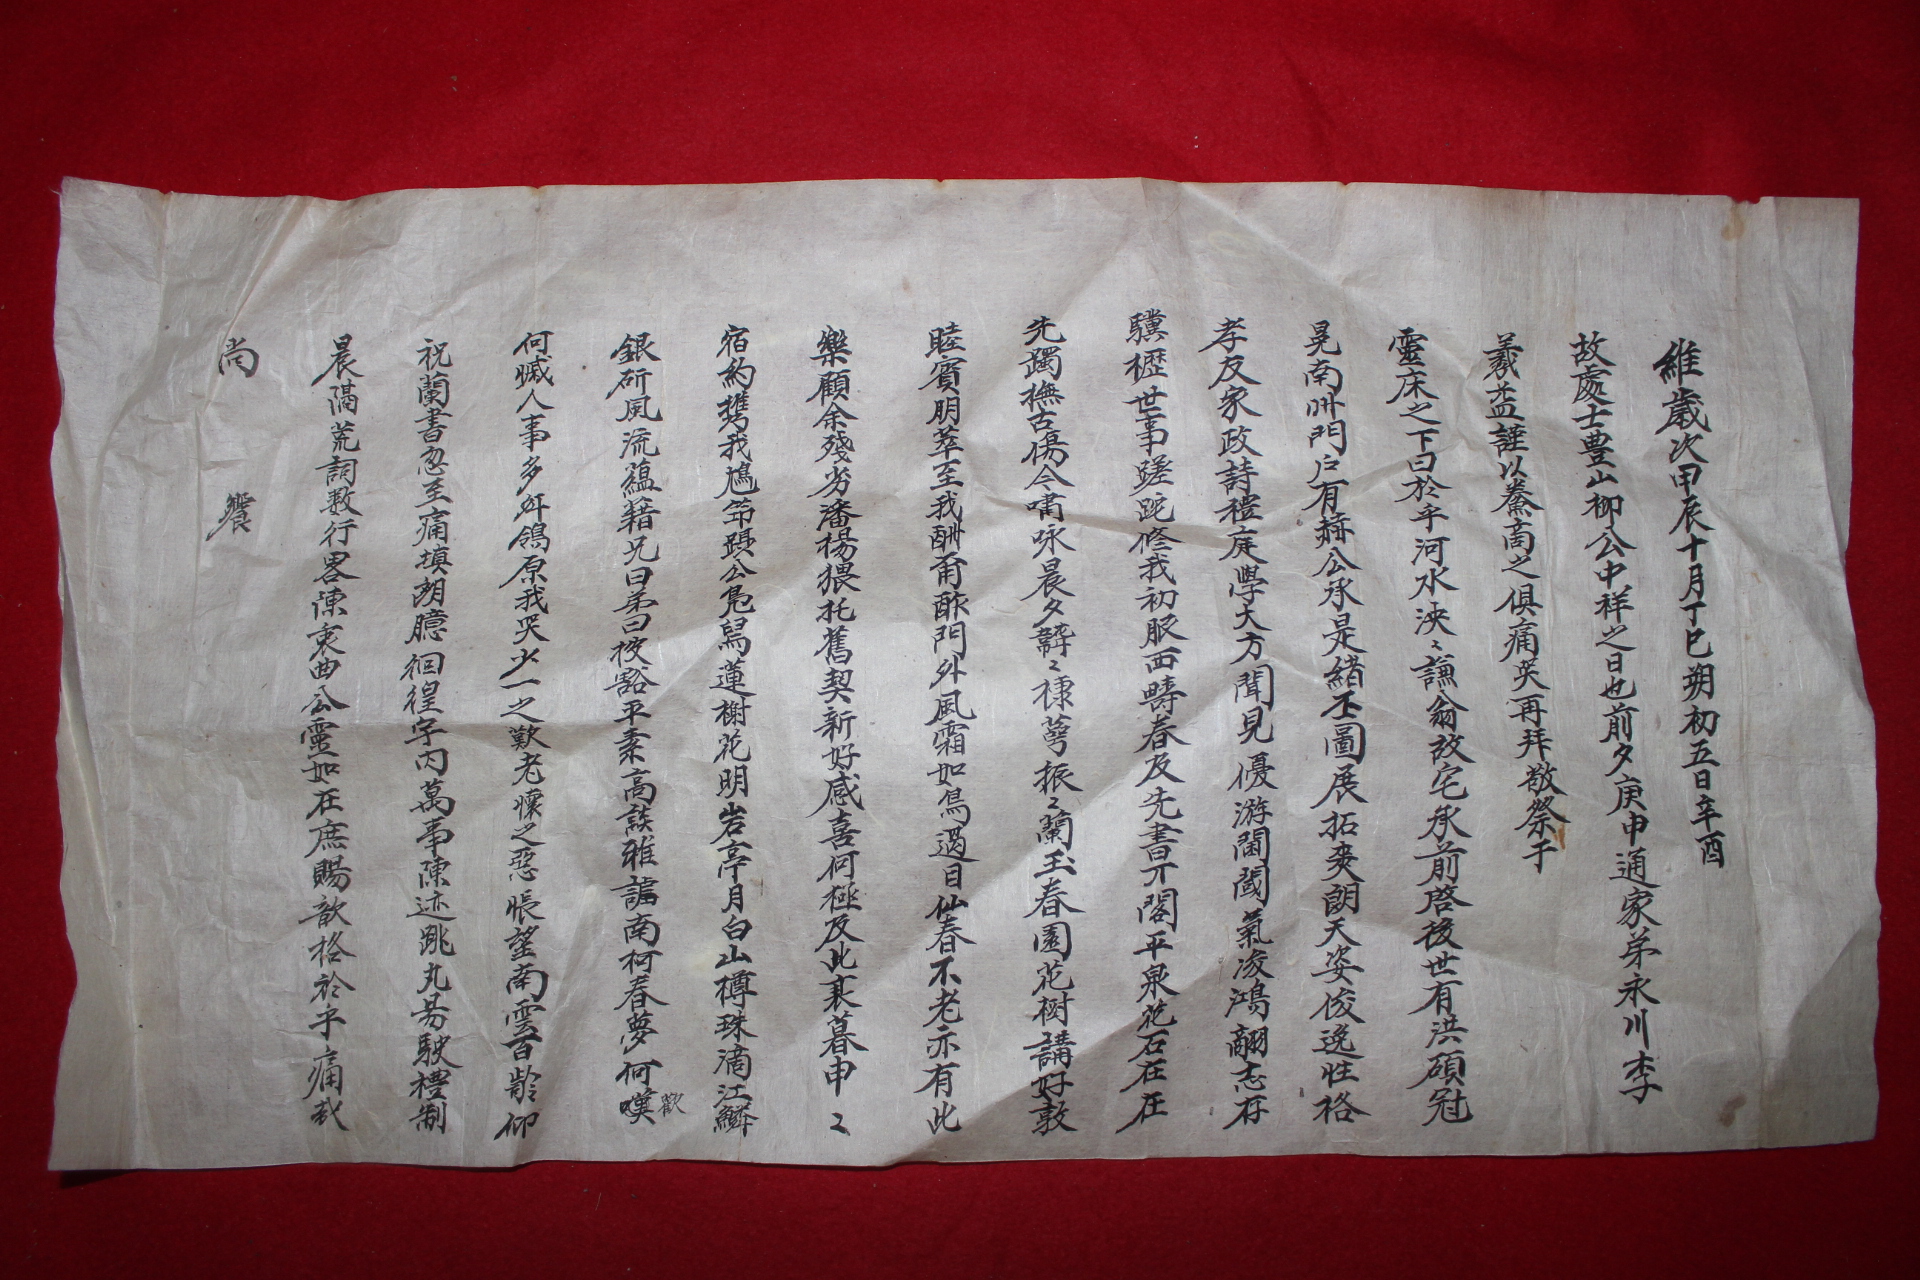 維歲次甲辰十月丁巳朔初五日辛酉
故處士豊山柳公中祥之日也前夕庚申通家弟永川李
羲益謹以鷄啇之俱痛哭再拜敬祭于
靈床之下曰於乎河水泱〻謙翁故宅承前啓後世有洪碩冠
冕南州門戶有赫公承是緖丕圖展拓爽朗天姿俊逸性格
孝友家政詩禮庭學大方聞見優游閫閾氣凌鴻翮志存
驥櫪世事蹉跎修我初服西疇春及先書开閣平泉花石在在
先躅撫古傷今嘯咏晨夕韡〻棣萼振〻蘭玉春園花樹講好敦
睦賓朋萃至我酬甭酢門外風霜如鳥過目仙春不老亦有此
樂顧余殘劣潘楊猥托舊契新好感喜何極及此衰暮申〻
宿約携我鳩笻躡公鳧舃蓮榭花明岩亭月白山樽珠滴江鱗
銀斫風流蘊籍兄曰弟曰披豁平素高談雅謔南柯春夢何嘆歡
何慽人事多舛鴒原我哭少一之歎老懷之惡悵望南雲百齡仰
祝蘭書忽至痛塡胸臆徊徨宇內萬事陳迹跳丸易駛禮制
晨隔荒詞數行畧陳衷曲公靈如在庶賜歆格於乎痛哉
尚 饗